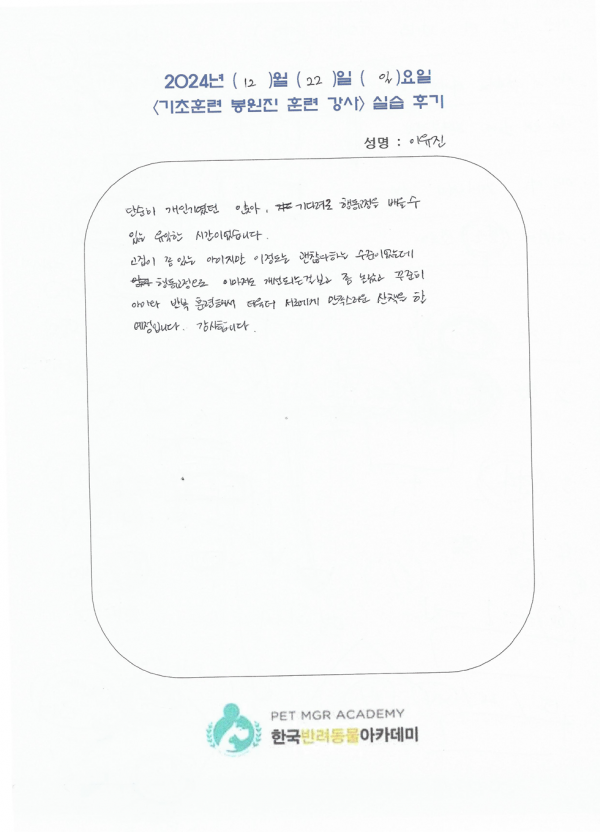 2024년 ( 12 )월 ( 22 )일 ( 일 )요일
<기초훈련 봉원진 훈련 강사> 실습 후기
성명 : 이유진
단순히 개인기였던 앉아, 기다려로 행동교정을 배울 수
있는 유익한 시간이었습니다.
고집이 좀 있는 아이지만 이정도는 괜찮다하는 수준이었는데
행동교정으로 이마저도 개선되는걸보고 좀 놀랐고 꾸준히
아이와 반복 훈련해서 더욱더 서로에게 만족스러운 산책을 할
예정입니다. 감사합니다.
PET MGR ACADEMY
한국반려동물아카데미